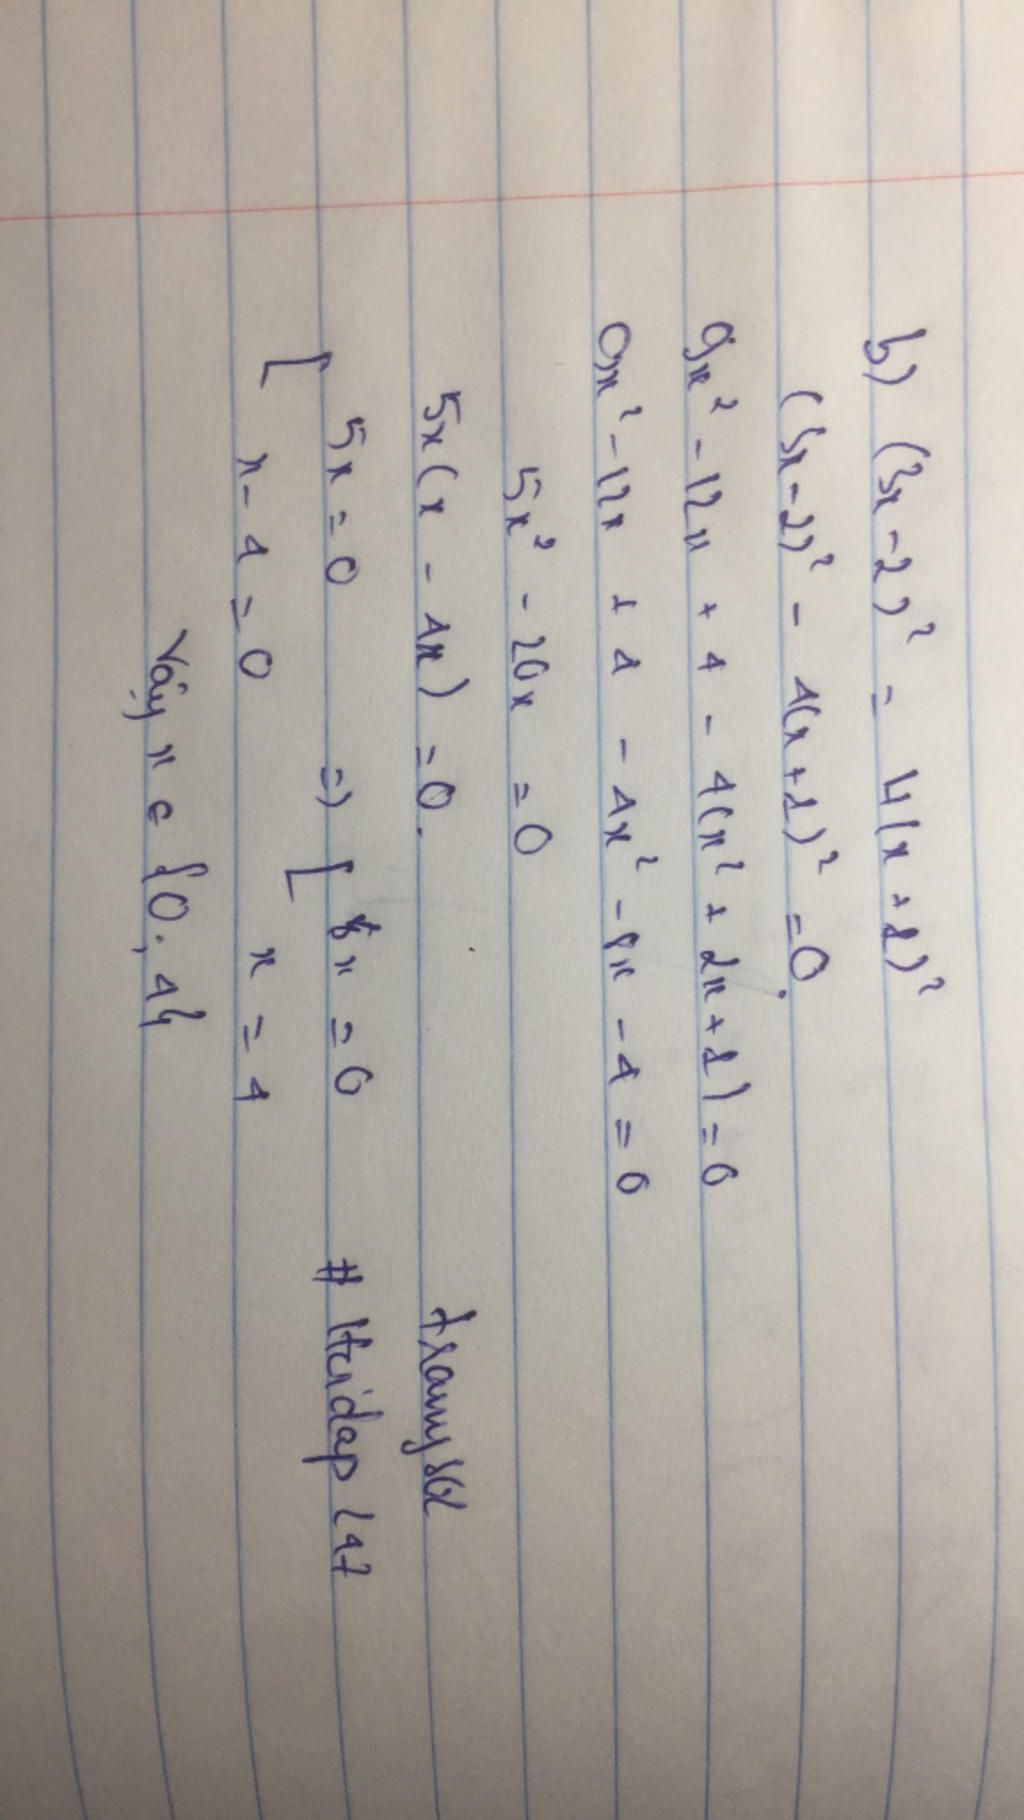 b) (3x - 2)² = 4(x + 1)²
(3x - 2)² - 4(x + 1)² = 0.
9x² - 12x + 4 - 4(x² + 2x + 1) = 0
9x² - 12x + 4 - 4x² - 8x - 4 = 0
5x² - 20x = 0
5x(x - 4x) = 0.
[ 5x = 0 => [ x = 0
x - 4 = 0 x = 4
Vậy x ∈ {0; 4}
# Hoidap 247